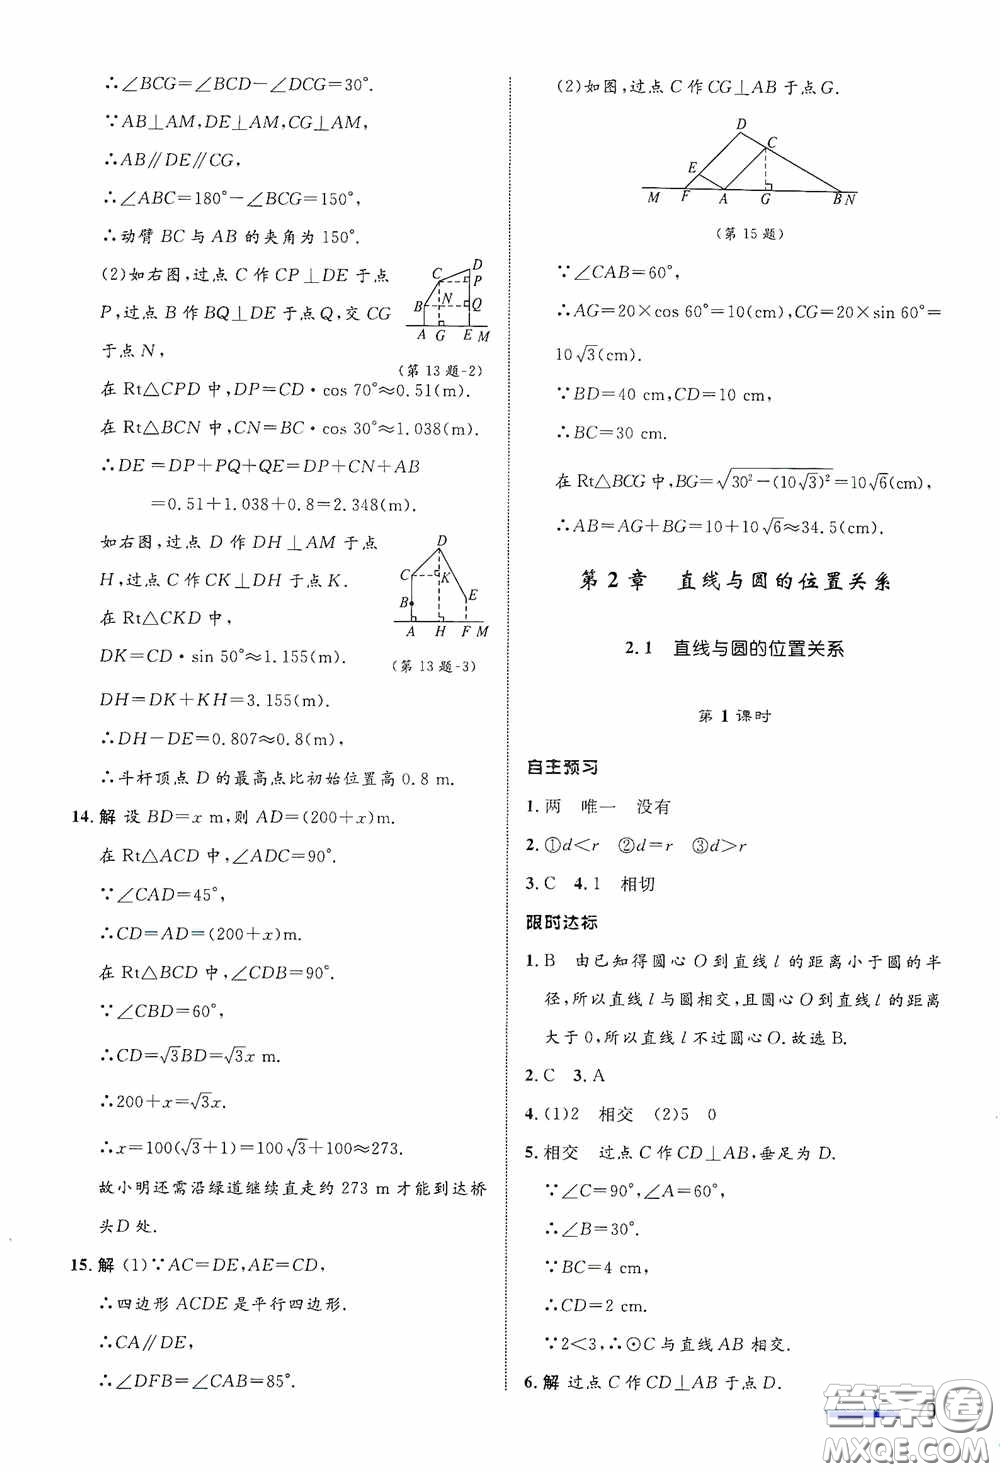 ∴∠BCG=∠BCD-∠DCG=30°.
∵AB⊥AM,DE⊥AM,CG⊥AM,
∴AB∥DE∥CG,
∴∠ABC=180°-∠BCG=150°,
∴动臂 BC 与 AB 的夹角为 150°.
(2)如右图,过点 C 作 CP⊥DE 于点
P,过点 B 作 BQ⊥DE 于点 Q,交 CG
于点 N,
D
C
P
B
N
Q
A G E M
(第 13 题-2)
在 Rt△CPD 中,DP=CD·cos 70°≈0.51(m).
在 Rt△BCN 中,CN=BC·cos 30°≈1.038(m).
∴DE=DP+PQ+QE=DP+CN+AB
=0.51+1.038+0.8=2.348(m).
如右图,过点 D 作 DH⊥AM 于点
H,过点 C 作 CK⊥DH 于点 K.
在 Rt△CKD 中,
D
C
K
B
E
A H F M
(第 13 题-3)
DK=CD·sin 50°≈1.155(m).
DH=DK+KH=3.155(m).
∴DH-DE=0.807≈0.8(m),
∴斗杆顶点 D 的最高点比初始位置高 0.8 m.
14. 解 设 BD=x m,则 AD=(200+x)m.
在 Rt△ACD 中,∠ADC=90°.
∵∠CAD=45°,
∴CD=AD=(200+x)m.
在 Rt△BCD 中,∠CDB=90°.
∵∠CBD=60°,
∴CD=√3BD=√3x m.
∴200+x=√3x.
∴x=100(√3+1)=100√3+100≈273.
故小明还需沿绿道继续直走约 273 m 才能到达桥
头 D 处.
15. 解 (1)∵AC=DE,AE=CD,
∴四边形 ACDE 是平行四边形.
∴CA∥DE,
∴∠DFB=∠CAB=85°.
(2)如图,过点 C 作 CG⊥AB 于点 G.
D
C
E
M F A G B N
(第 15 题)
∵∠CAB=60°,
∴AG=20×cos 60°=10(cm),CG=20×sin 60°=
10√3(cm).
∵BD=40 cm,CD=10 cm,
∴BC=30 cm.
在 Rt△BCG 中,BG=√(30²-(10√3)²)=10√6(cm),
∴AB=AG+BG=10+10√6≈34.5(cm).
第 2 章 直线与圆的位置关系
2.1 直线与圆的位置关系
第 1 课时
自主预习
1. 两 唯一 没有
2. ①d<r ②d=r ③d>r
3. C 4. 1 相切
限时达标
1. B 由已知得圆心 O 到直线 l 的距离小于圆的半
径,所以直线 l 与圆相交,且圆心 O 到直线 l 的距离
大于 0,所以直线 l 不过圆心 O.故选 B.
2. C 3. A
4. (1)2 相交 (2)5 0
5. 相交 过点 C 作 CD⊥AB,垂足为 D.
∵∠C=90°,∠A=60°,
∴∠B=30°.
∵BC=4 cm,
∴CD=2 cm.
∵2<3,∴⊙C 与直线 AB 相交.
6. 解 过点 C 作 CD⊥AB 于点 D.
答案圈
MXQE.COM
9